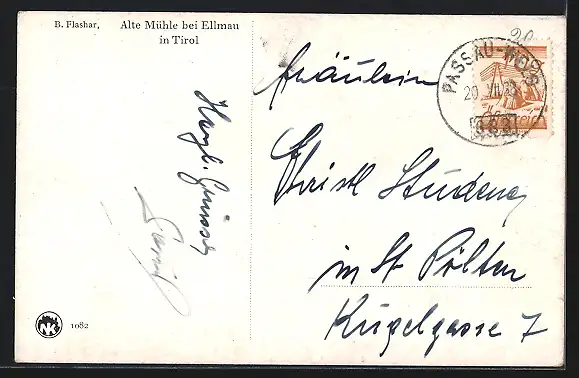 B. Flashar, Alte Mühle bei Ellmau
in Tirol
Herzl. Grüsse
20
PASSAU-
20 VII
Fräulein
Christl Studeny
in St Pölten
Kugelgasse 7
NK 1082